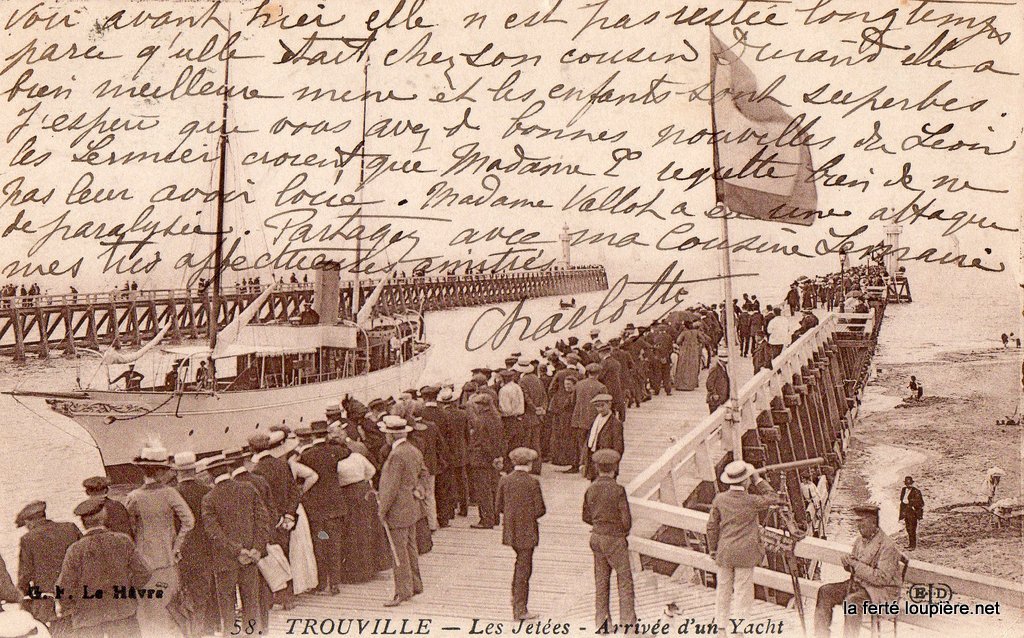 voir avant hier elle n est pas restée longtemps
parce qu'elle était chez son cousin Durand elle a
bien meilleure mine et les enfants sont superbes.
J'espère que vous avez d bonnes nouvelles de Léon
les croient que Madame regrette bien de ne
pas leur avoir loué. Madame Vallot a eu une attaque
de paralysie. Partagez avec ma cousine Lemaire
mes très affectueuses amitiés
Charlotte
G. F. Le Hâvre
ELD
58. TROUVILLE - Les Jetées - Arrivée d'un Yacht
la ferté loupière.net